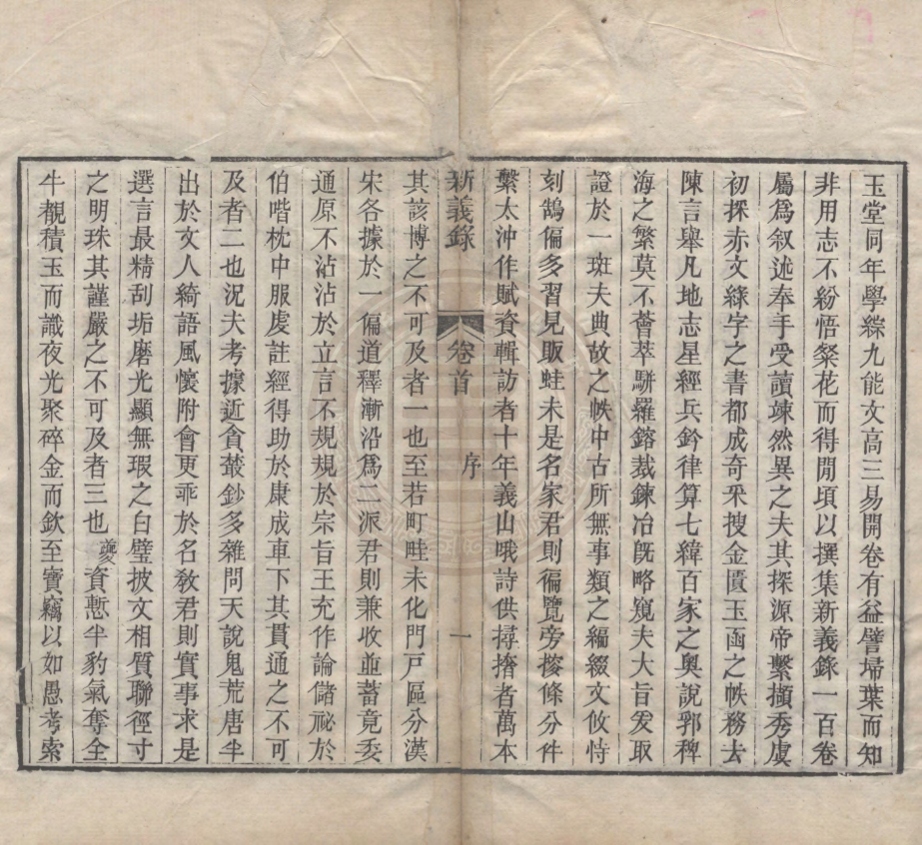 玉堂同年學綜九能文高三易開卷有益譬埽葉而知
非用志不紛悟粲花而得閒頃以撰集新義錄一百卷
屬爲叙述奉手受讀竦然異之夫其探源帝繫擷秀虞
初探赤文綠字之書都成奇采搜金匱玉函之帙務去
陳言舉凡地志星經兵鈐律算七緯百家之奧說郛稗
海之繁莫不薈萃駢羅鎔裁鍊冶旣略窺夫大旨爰取
證於一斑夫典故之帙中古所無事類之編綴文攸恃
刻鵠偏多習見販蛙未是名家君則徧覽旁搜條分件
繫太沖作賦資輯訪者十年義山哦詩供撏撦者萬本
新義錄 卷首 序 一
其該博之不可及者一也至若町畦未化門戸區分漢
宋各據於一偏道釋漸沿爲二派君則兼收並蓄竟委
通原不沾沾於立言不規規於宗旨王充作論儲祕於
伯喈枕中服虔註經得助於康成車下其貫通之不可
及者二也況夫考據近貪叢鈔多雜問天說鬼荒唐半
出於文人綺語風懷附會更乖於名敎君則實事求是
選言最精刮垢磨光顯無瑕之白璧披文相質聯徑寸
之明珠其謹嚴之不可及者三也夔資慙半豹氣奪全
牛覩積玉而識夜光聚碎金而欽至寶竊以如愚考索